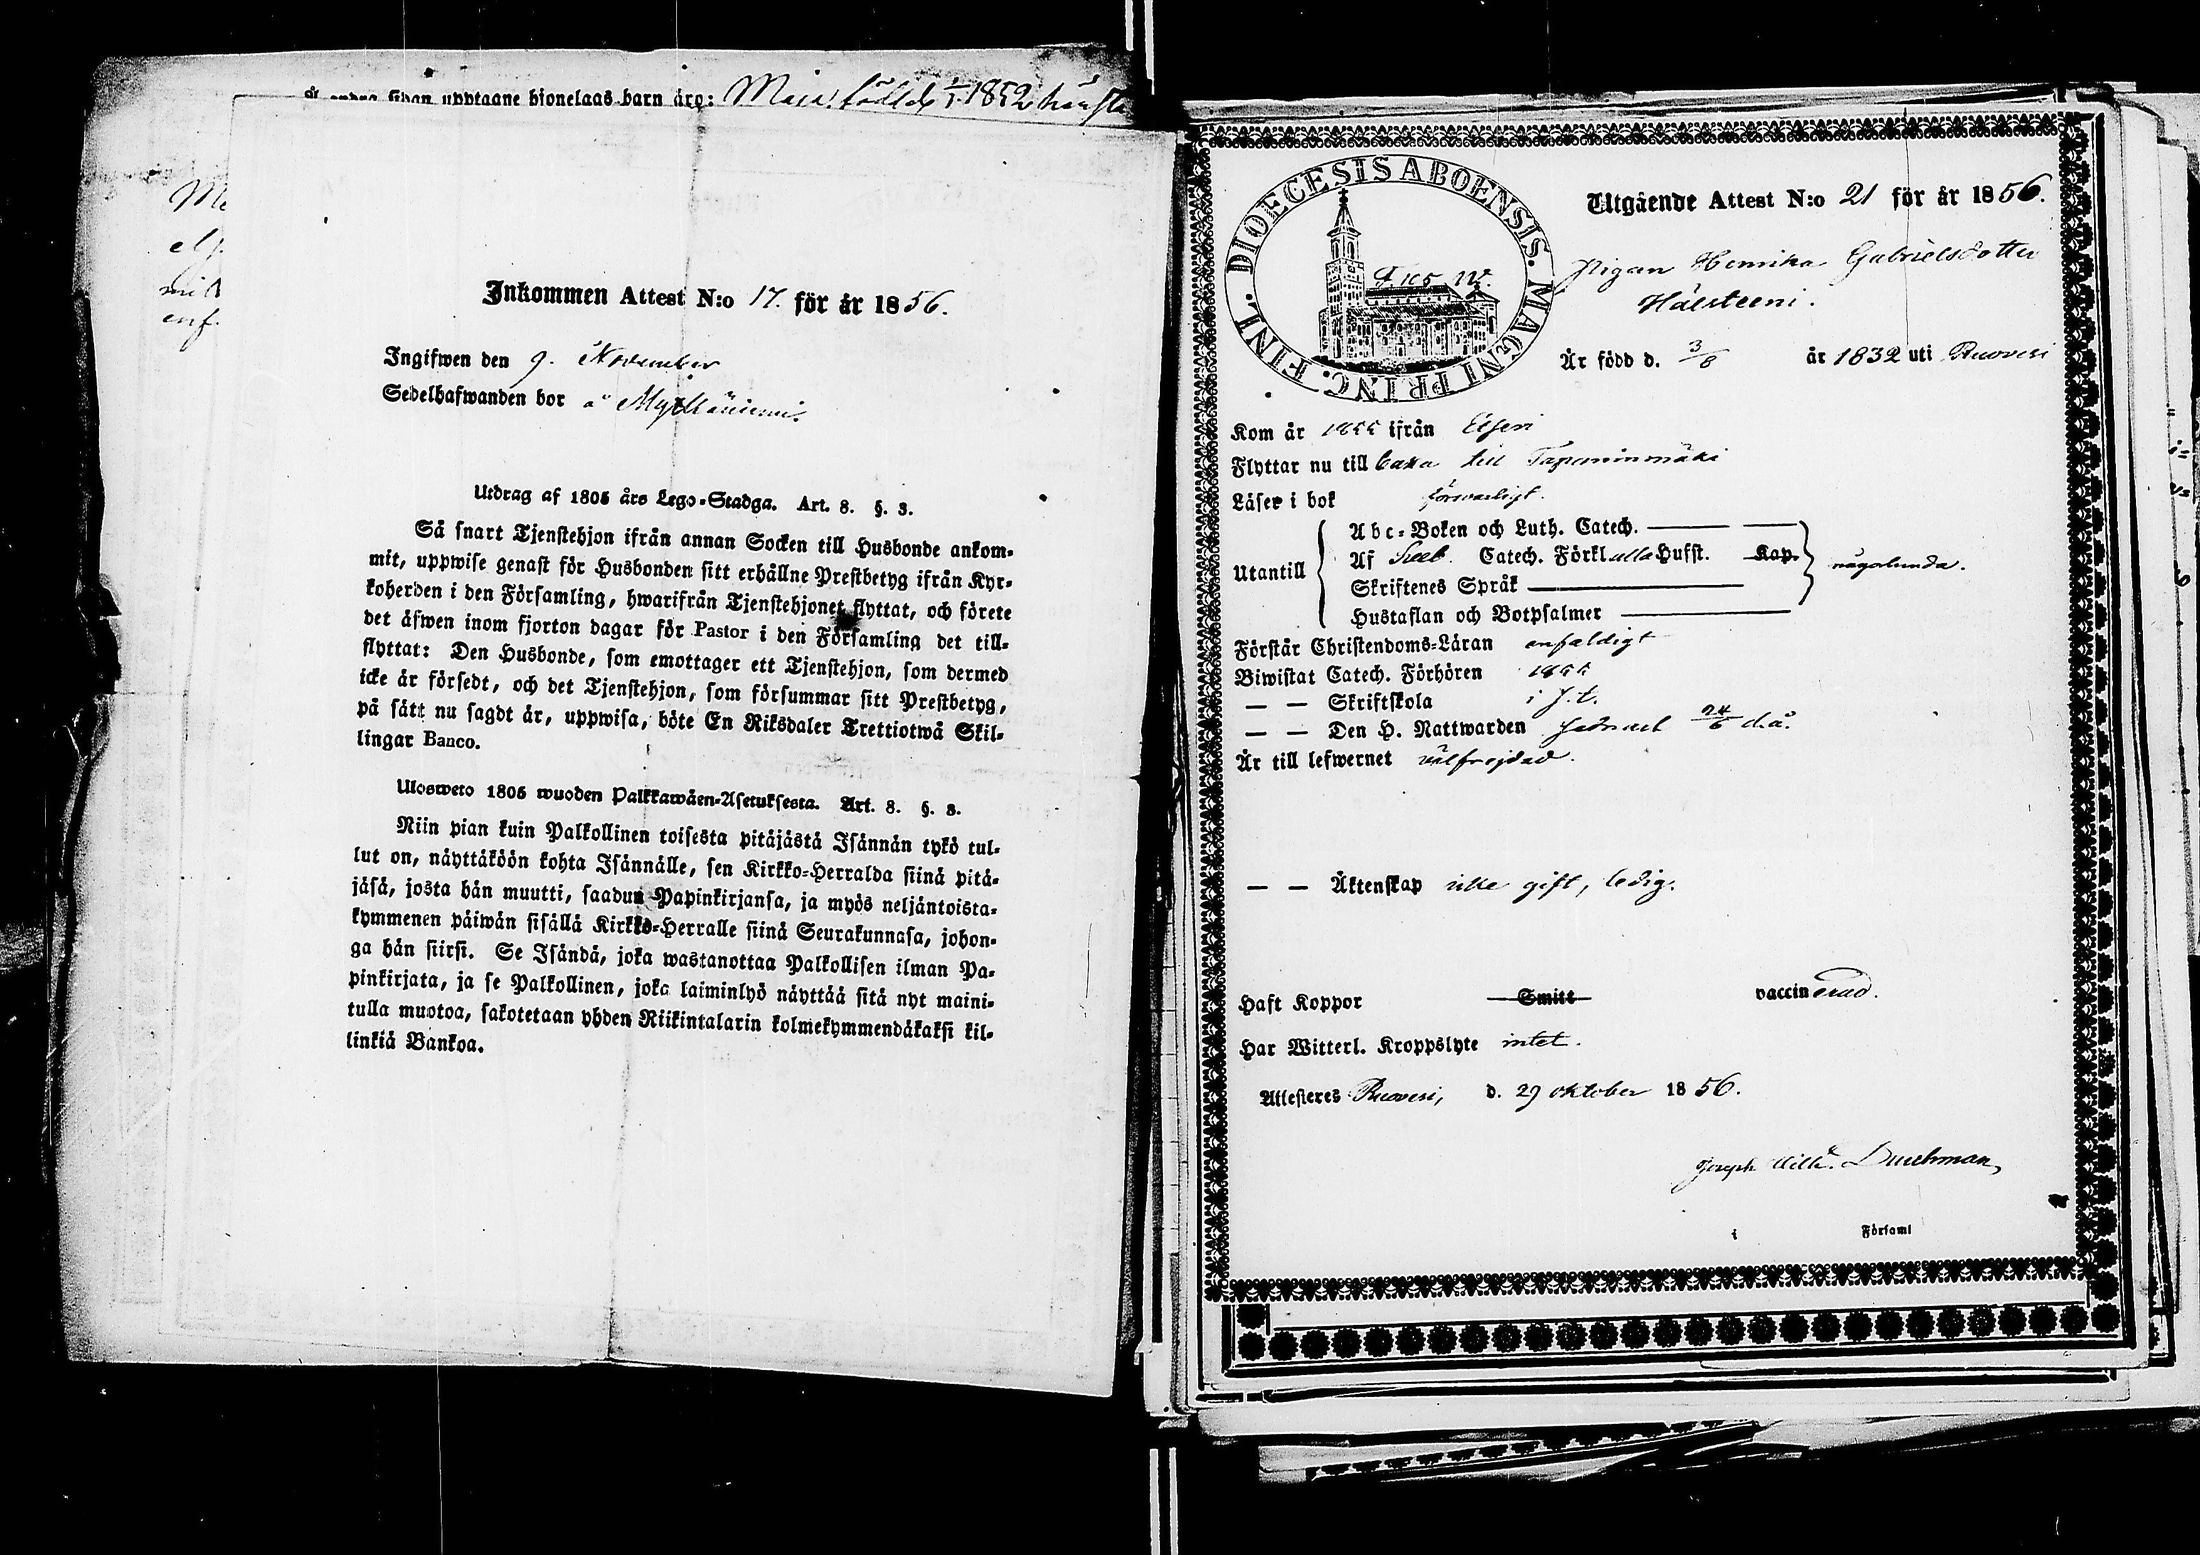 Å andra sidan upptagne hjonelags barn äro: Maia född d. 1/1 1852
Inkommen Attest N:o 17. för år 1856.
Ingifwen den 9. November
Sedelhafwanden bor å Mylläniemi.
Utdrag af 1805 års Lego-Stadga. Art. 8. §. 3.
Så snart Tjenstehjon ifrån annan Socken till Husbonde ankom-
mit, uppwise genast för Husbonden sitt erhållne Prestbetyg ifrån Kyr-
koherden i den Församling, hwarifrån Tjenstehjonet flyttat, och förete
det äfwen inom fjorton dagar för Pastor i den Församling det till-
flyttat: Den Husbonde, som emottager ett Tjenstehjon, som dermed
icke är försedt, och det Tjenstehjon, som försummar sitt Prestbetyg,
på sätt nu sagdt är, uppwisa, böte En Riksdaler Trettiotwå Skil-
lingar Banco.
Ulosweto 1805 wuoden Palkkawäen-Asetuksesta. Art. 8. §. 3.
Niin pian kuin Palkollinen toisesta pitäjästä Isännän tykö tul-
lut on, näyttäköön kohta Isännälle, sen Kirkko-Herralda siinä pitä-
jäsä, josta hän muutti, saadun Papinkirjansa, ja myös neljäntoista-
kymmenen päiwän sisällä Kirkko-Herralle siinä Seurakunnasa, johon-
ga hän siirsi. Se Isändä, joka wastanottaa Palkollisen ilman Pa-
pinkirjata, ja se Palkollinen, joka laiminlyö näyttää sitä nyt maini-
tulla muotoa, sakotetaan yhden Riikintalarin kolmekymmendäkaksi kil-
linkiä Bankoa.
FINL. DIOECESIS ABOENSIS. MAGNI PRINC.
Utgående Attest N:o 21 för år 1856.
Pigan Henrika Gabrielsdotter
Hälsteeni.
Är född d. 3/8 år 1832 uti Ruovesi
Kom år 1855 ifrån Etseri
Flyttar nu till till Tapaninmäki
Läser i bok försvarligt.
Utantill
Abc-Boken och Luth. Catech.
Af Sveb. Catech. Förkl alla Husst. Kap.
någorlunda.
Skriftenes Språk
Hustaflan och Botpsalmer
Förstår Christendoms-Läran enfaldigt
Biwistat Catech. Förhören 1855
— — Skriftskola i s. t.
— — Den H. Nattwarden sednast 24/6 d. å.
Är till lefwernet välfrejdad.
— — Äktenskap icke gift, ledig.
Haft Koppor Smitt vaccinerad.
Har Witterl. Kroppslyte intet.
Attesteres Ruovesi, d. 29 oktober 1856.
Joseph Wilh. Durchman,
i Församl